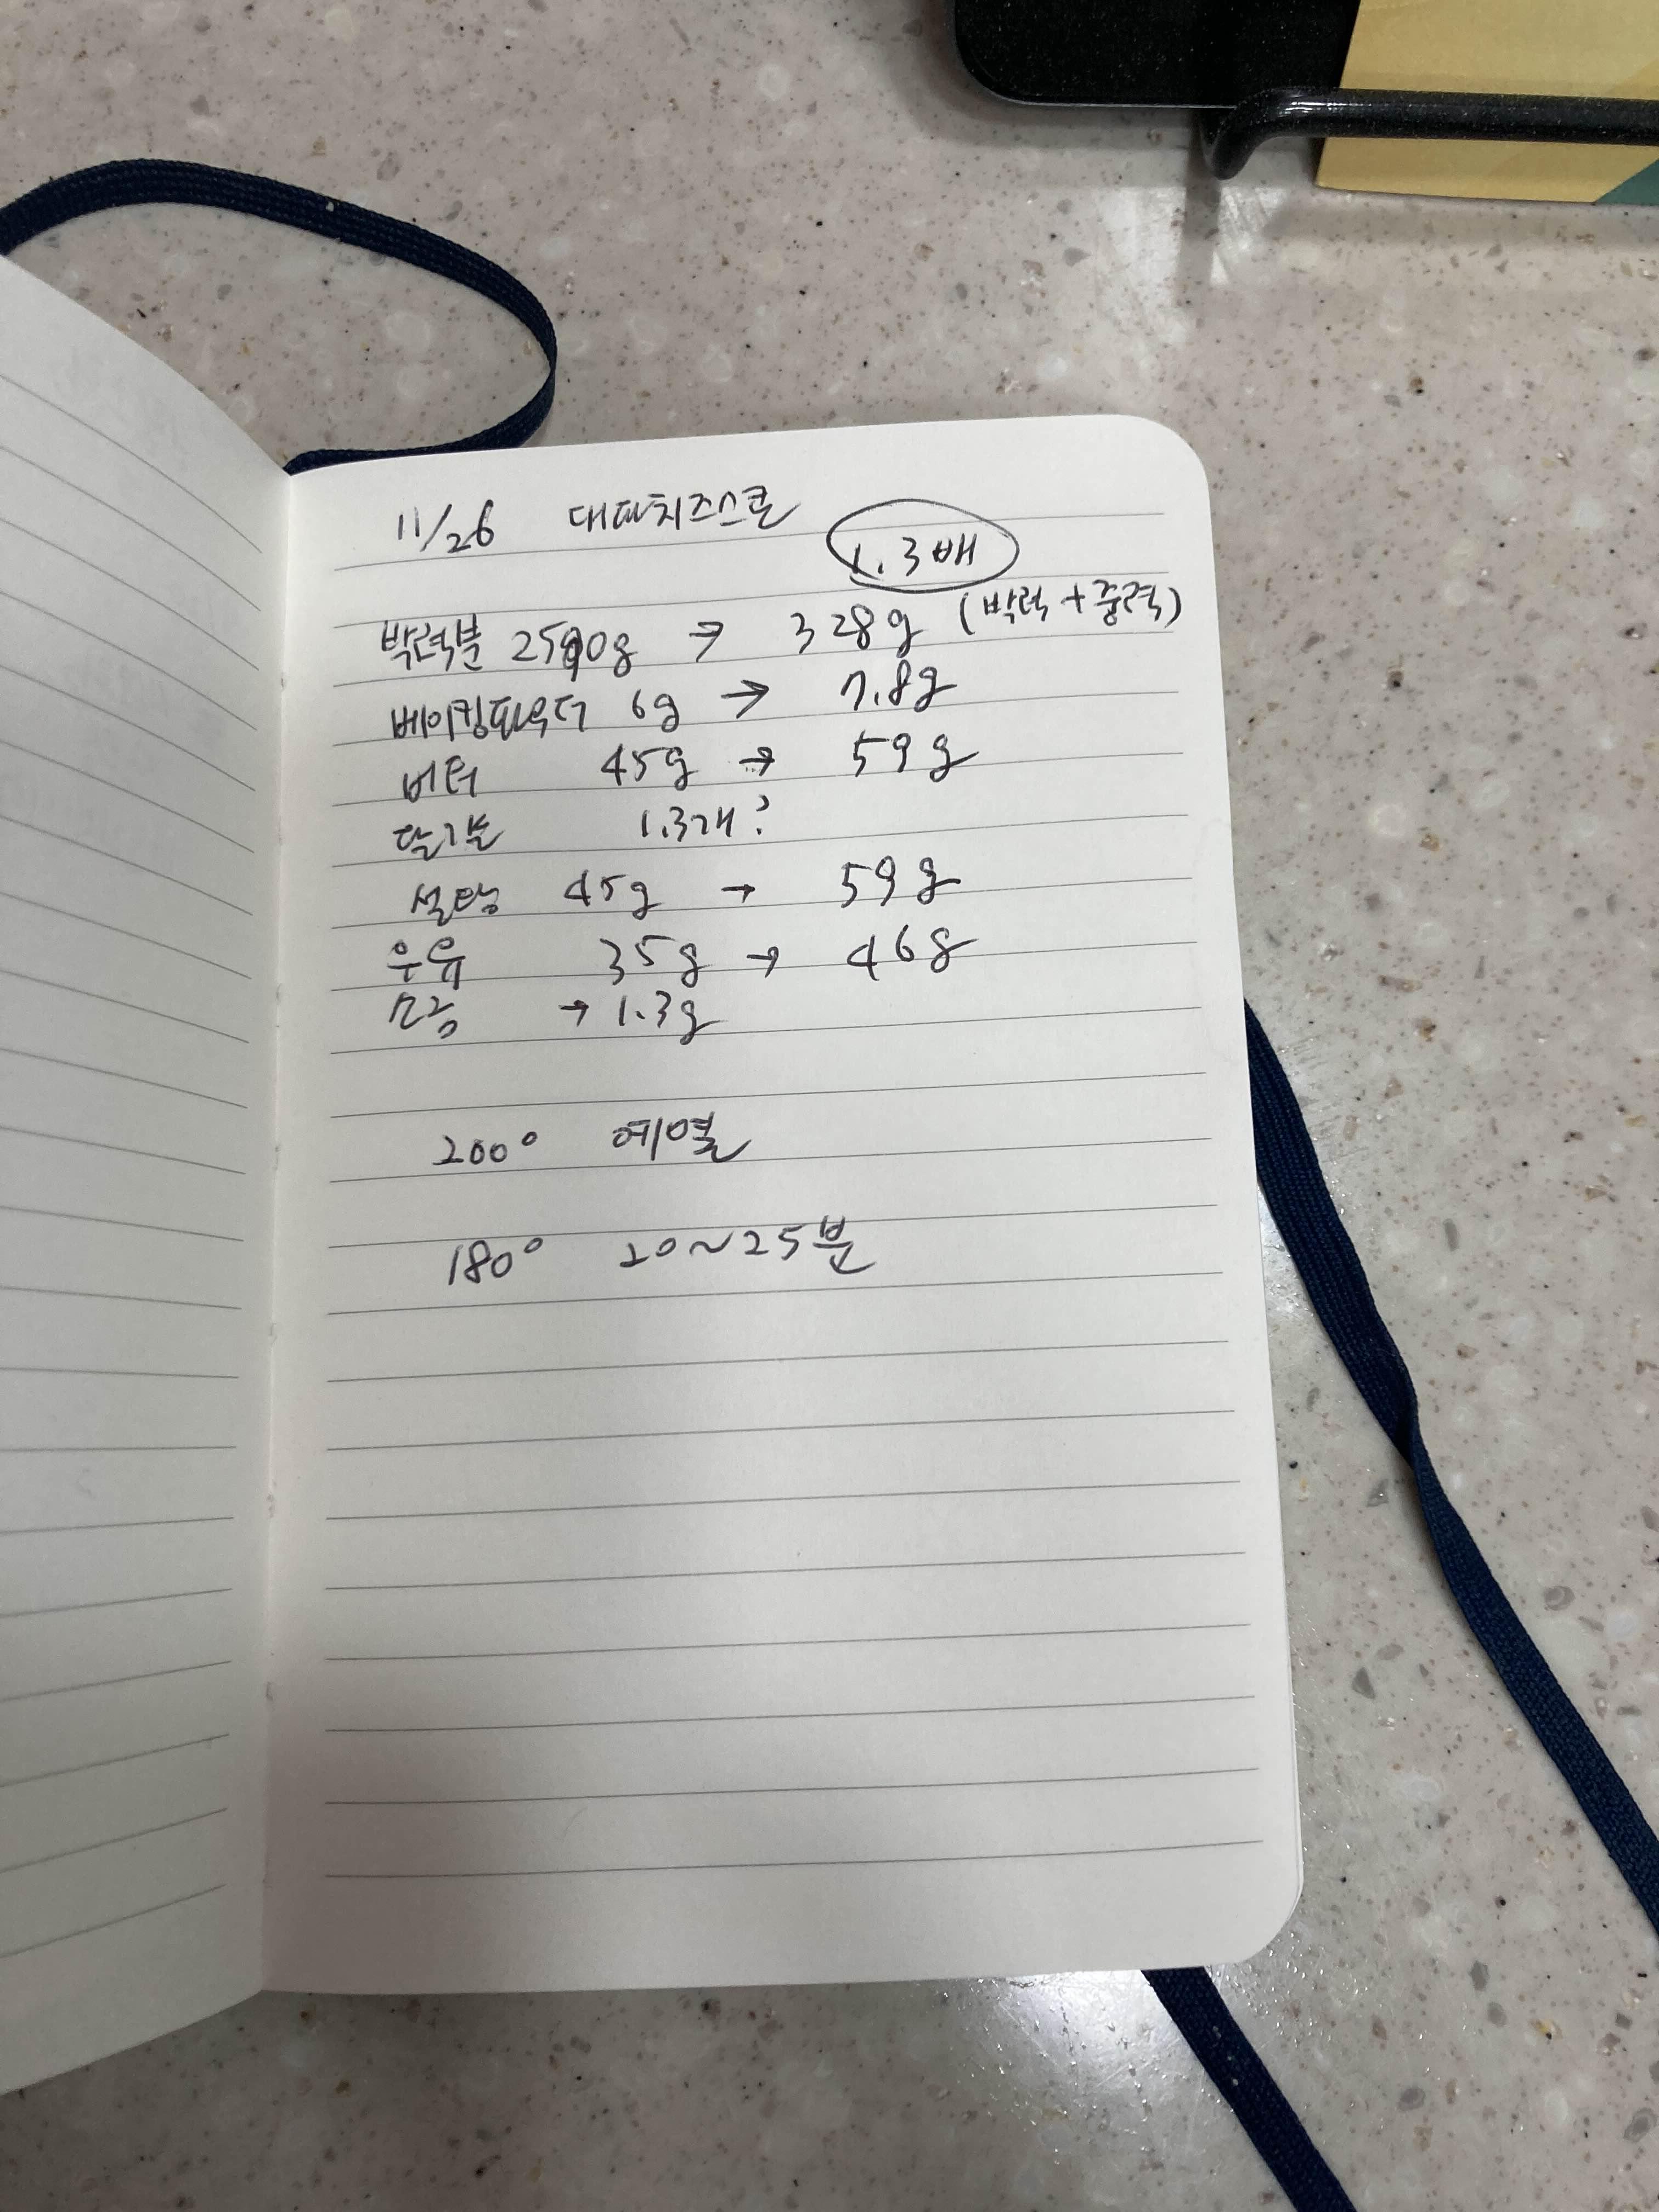 11/26 대파치즈스콘
1.3배
박력분 250g → 328g (박력+중력)
베이킹파우더 6g → 7.8g
버터 45g → 59g
달걀 1.3개?
설탕 45g → 59g
우유 35g → 46g
소금 → 1.3g
200° 예열
180° 20~25분